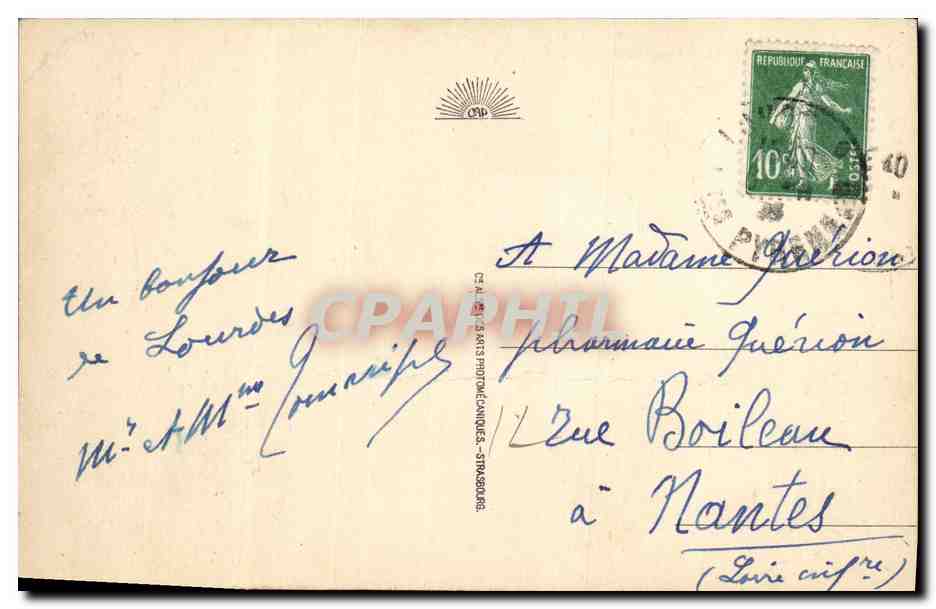 CAP
REPUBLIQUE FRANÇAISE
10c
POSTES
40
PYRENEES
Un bonjour
de Lourdes
Mr et Mme
Cie DES ARTS PHOTOMÉCANIQUES.-STRASBOURG.
CPAPHIL
A Madame Guérion
pharmacie Guérion
12 rue Boileau
à Nantes
(Loire infre)